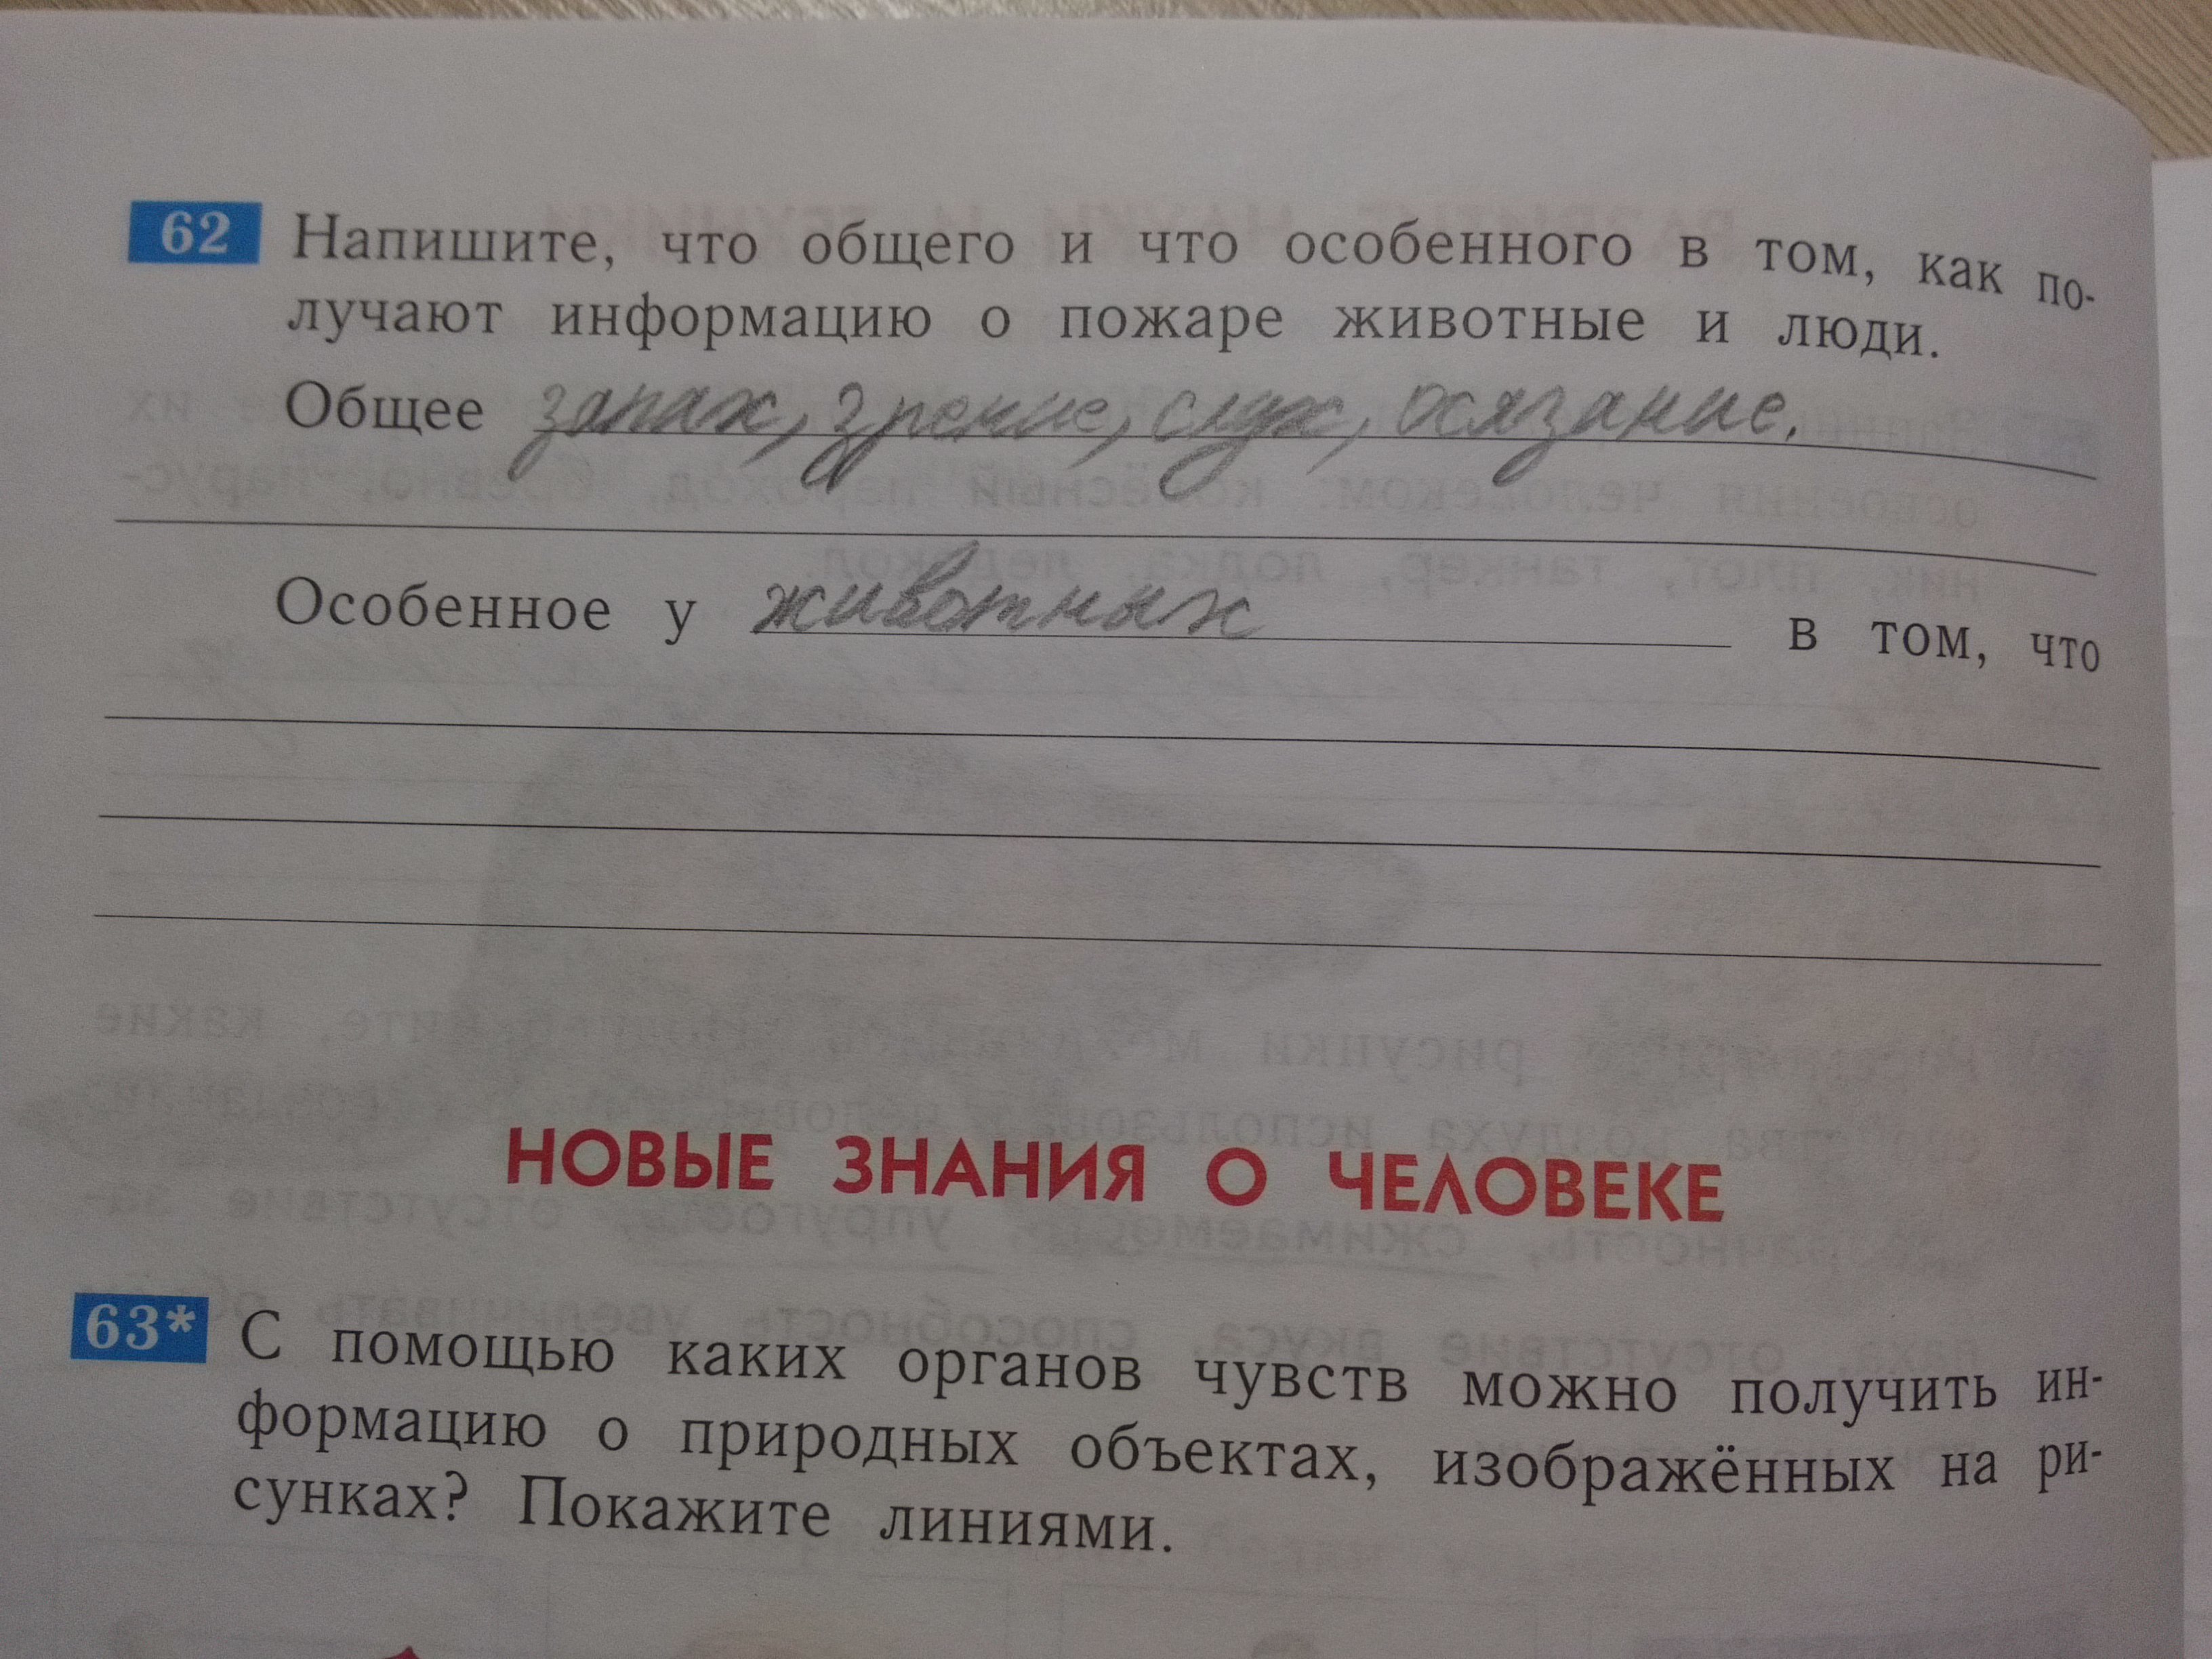 62 Напишите, что общего и что особенного в том, как по-
лучают информацию о пожаре животные и люди.
Общее запах, зрение, слух, осязание.
Особенное у животных в том, что
НОВЫЕ ЗНАНИЯ О ЧЕЛОВЕКЕ
63* С помощью каких органов чувств можно получить ин-
формацию о природных объектах, изображённых на ри-
сунках? Покажите линиями.